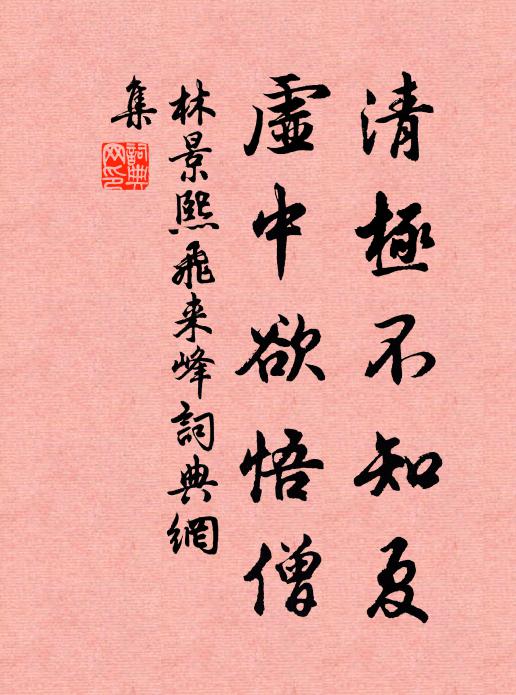 清極不知夏
虛中欲悟僧
林景熙飛来峰詞典網
集
詞典
网印